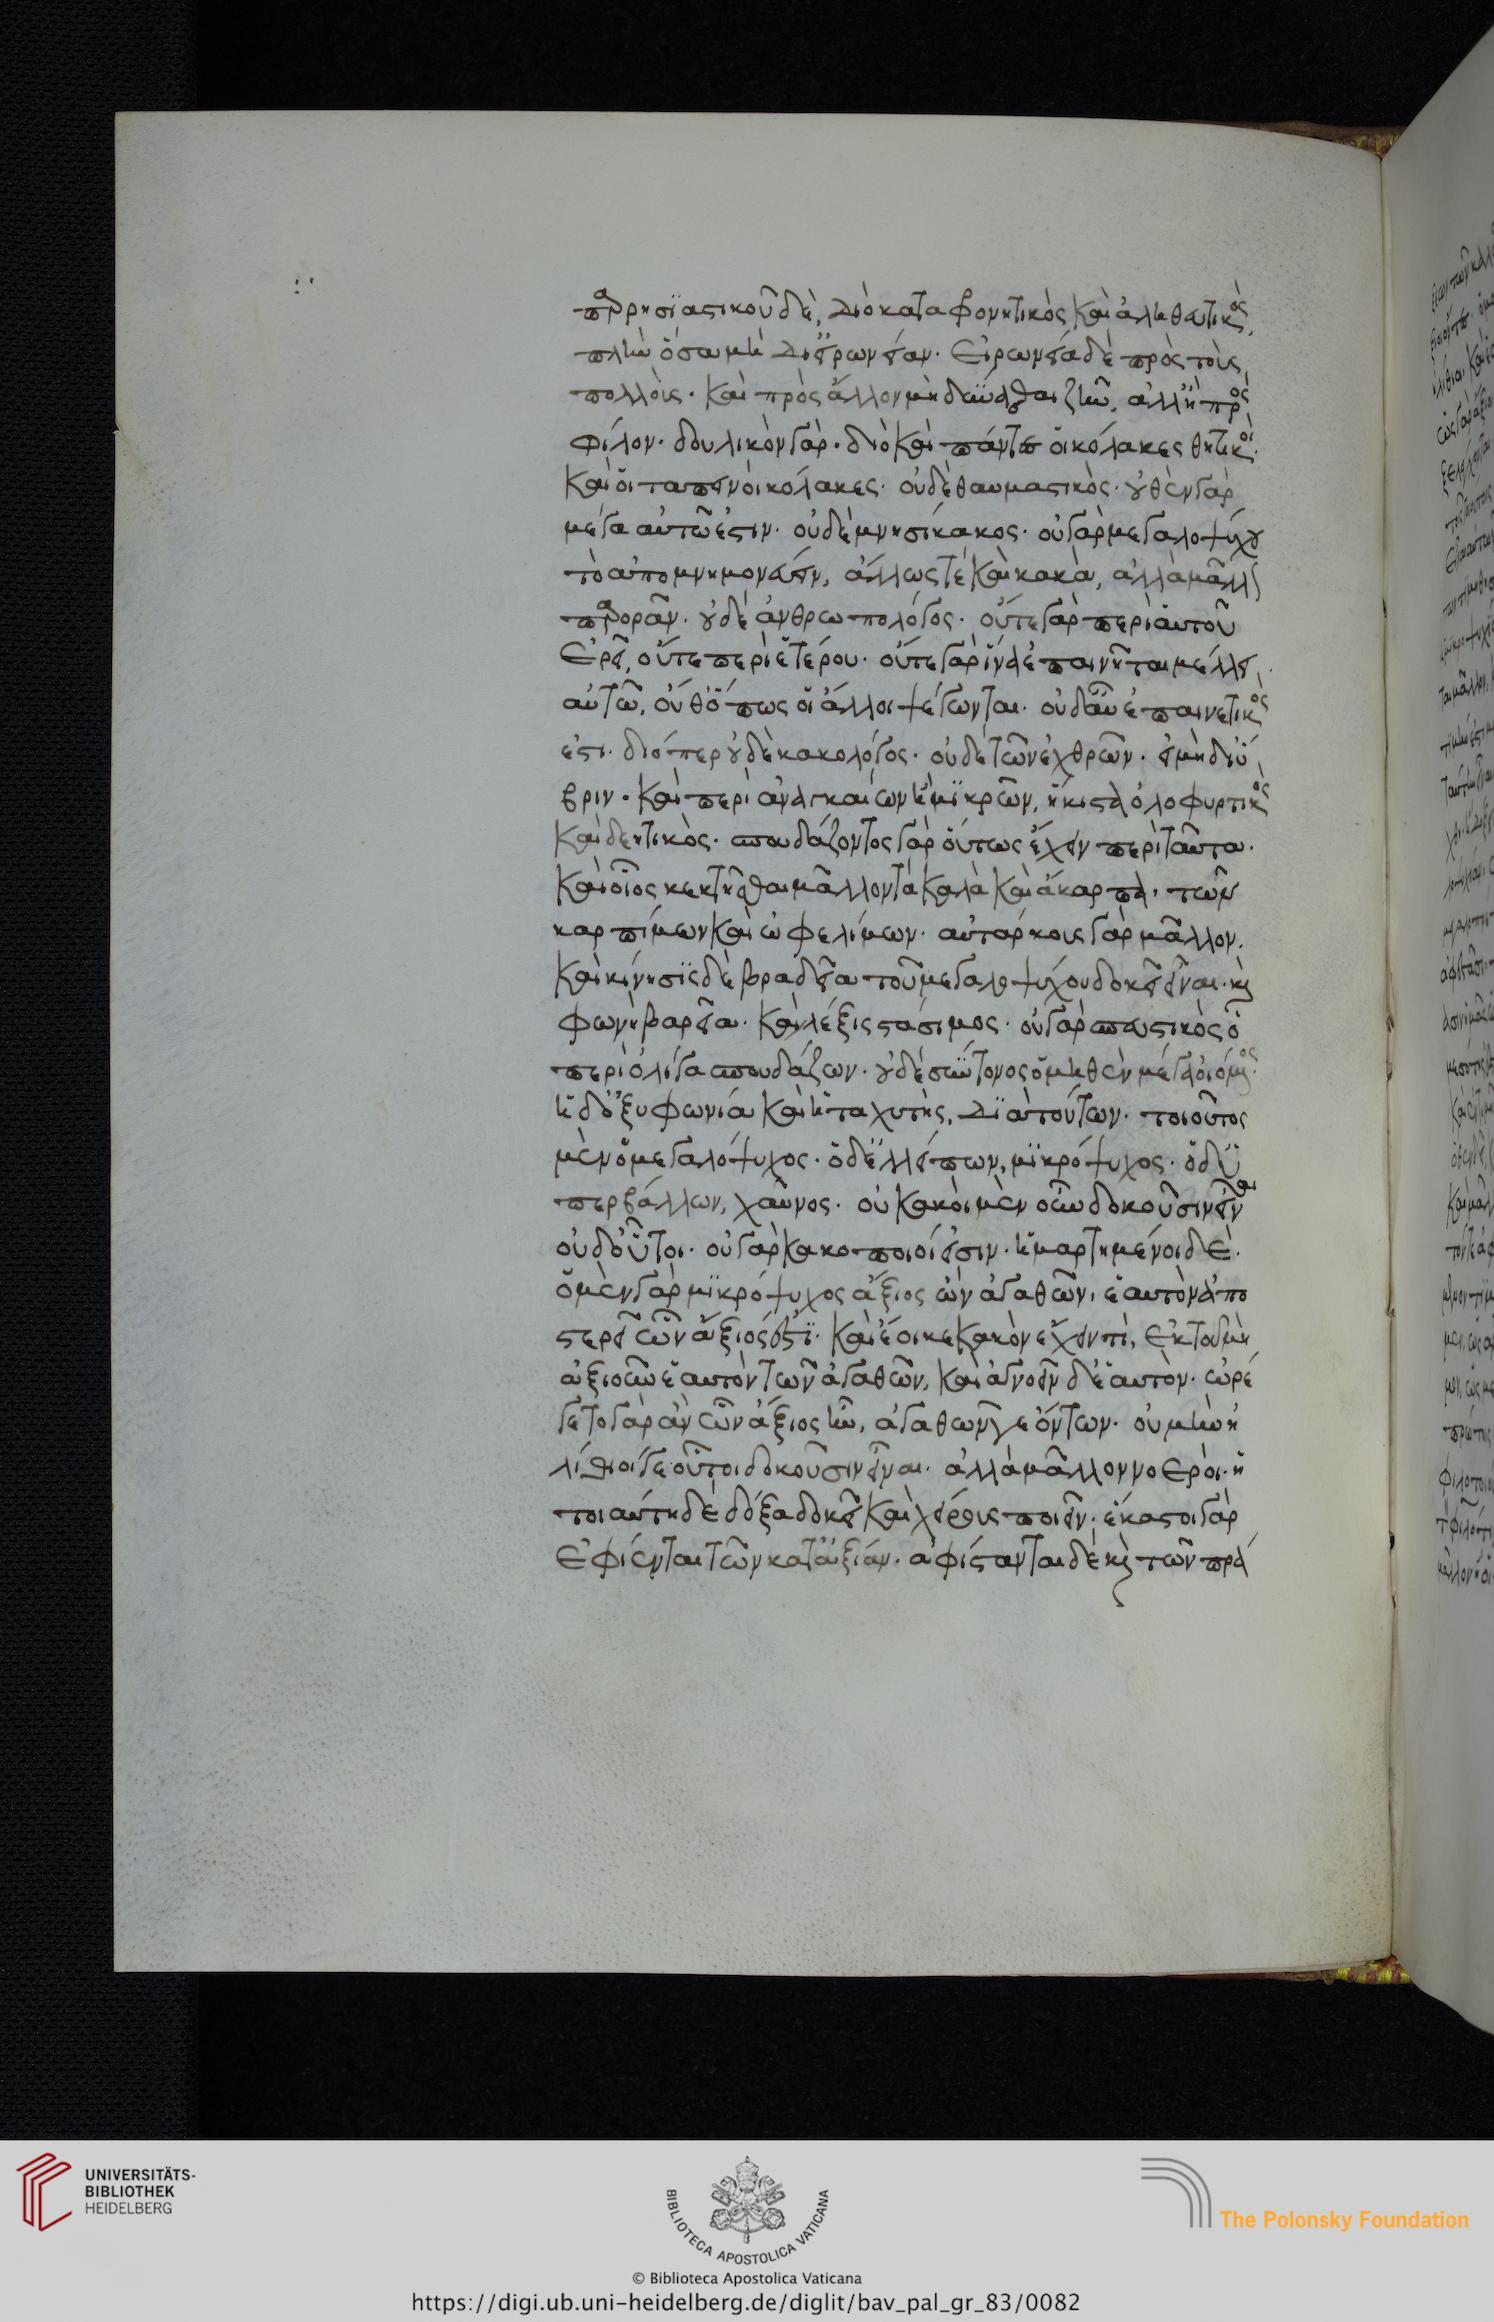 παρρησϊαστικοῦ δὲ, διὸ καταφρονητικὸς καὶ ἀληθευτικὸς,
πλὴν ὅσα μὴ δι' εἰρωνείαν. εἰρωνεία δὲ πρὸς τοὺς
πολλούς. καὶ πρὸς ἄλλον μὴ δύνασθαι ζῆν, ἀλλ' ἢ πρὸς
φίλον. δουλικὸν γάρ. διὸ καὶ πάντες οἱ κόλακες θητικοί.
καὶ οἱ ταπεινοὶ κόλακες. οὐδὲ θαυμαστικὸς. οὐθὲν γὰρ
μέγα αὐτῷ ἐστιν. οὐδὲ μνησίκακος. οὐ γὰρ μεγαλοψύχου
τὸ ἀπομνημονεύειν, ἄλλως τε καὶ κακὰ, ἀλλὰ μᾶλλον
παρορᾶν. οὐδὲ ἀνθρωπολόγος. οὔτε γὰρ περὶ αὑτοῦ
ἐρεῖ, οὔτε περὶ ἑτέρου. οὔτε γὰρ ἵνα ἐπαινῆται μέλει
αὐτῷ, οὔθ' ὅπως οἱ ἄλλοι ψέγωνται. οὐδ' αὖ ἐπαινετικός
ἐστι. διόπερ οὐδὲ κακολόγος. οὐδὲ τῶν ἐχθρῶν. εἰ μὴ δι' ὕ
βριν. καὶ περὶ ἀναγκαίων ἢ μϊκρῶν, ἥκιστα ὀλοφυρτικὸς
καὶ δεητικὸς. σπουδάζοντος γὰρ οὕτως ἔχειν περὶ ταῦτα.
καὶ οἷος κεκτῆσθαι μᾶλλον τὰ καλὰ καὶ ἄκαρπα, τῶν
καρπίμων καὶ ὠφελίμων. αὐτάρκους γὰρ μᾶλλον.
καὶ κίνησϊς δὲ βραδεῖα τοῦ μεγαλοψύχου δοκεῖ εἶναι. καὶ
φωνὴ βαρεῖα. καὶ λέξις στάσιμος. οὐ γὰρ σπευστικὸς ὁ
περὶ ὀλίγα σπουδάζων. οὐδὲ σύντονος ὁ μηθὲν μέγα οἰόμενος.
ἡ δ' ὀξυφωνία καὶ ἡ ταχυτὴς, δϊὰ τούτων. τοιοῦτος
μὲν ὁ μεγαλόψυχος. ὁ δ' ἐλλείπων, μϊκρόψυχος. ὁ δ' ὑ
περβάλλων, χαῦνος. οὐ κακοὶ μὲν οὖν δοκοῦσιν εἶναι
οὐδ' οὗτοι. οὐ γὰρ κακοποιοί εἰσιν. ἡμαρτημένοι δὲ.
ὁ μὲν γὰρ μϊκρόψυχος ἄξιος ὢν ἀγαθῶν, ἑαυτὸν ἀπο
στερεῖ ὧν ἄξιός ἐστϊ. καὶ ἔοικε κακὸν ἔχειν τὶ, ἐκ τοῦ μὴ
ἀξιοῦν ἑαυτὸν τῶν ἀγαθῶν, καὶ ἀγνοεῖν δὲ ἑαυτὸν. ὠρέ
γετο γὰρ ἂν ὧν ἄξιος ἦν, ἀγαθῶν γε ὄντων. οὐ μὴν ἠ
λίθιοί γε οὗτοι δοκοῦσιν εἶναι. ἀλλὰ μᾶλλον νοεροὶ. ἡ
τοιαύτη δὲ δόξα δοκεῖ καὶ χείρους ποιεῖν. ἕκαστοι γὰρ
ἐφίενται τῶν κατ' ἀξίαν. ἀφίστανται δὲ καὶ τῶν πρά
UNIVERSITÄTS-
BIBLIOTHEK
HEIDELBERG
BIBLIOTECA APOSTOLICA VATICANA
The Polonsky Foundation
© Biblioteca Apostolica Vaticana
https://digi.ub.uni-heidelberg.de/diglit/bav_pal_gr_83/0082